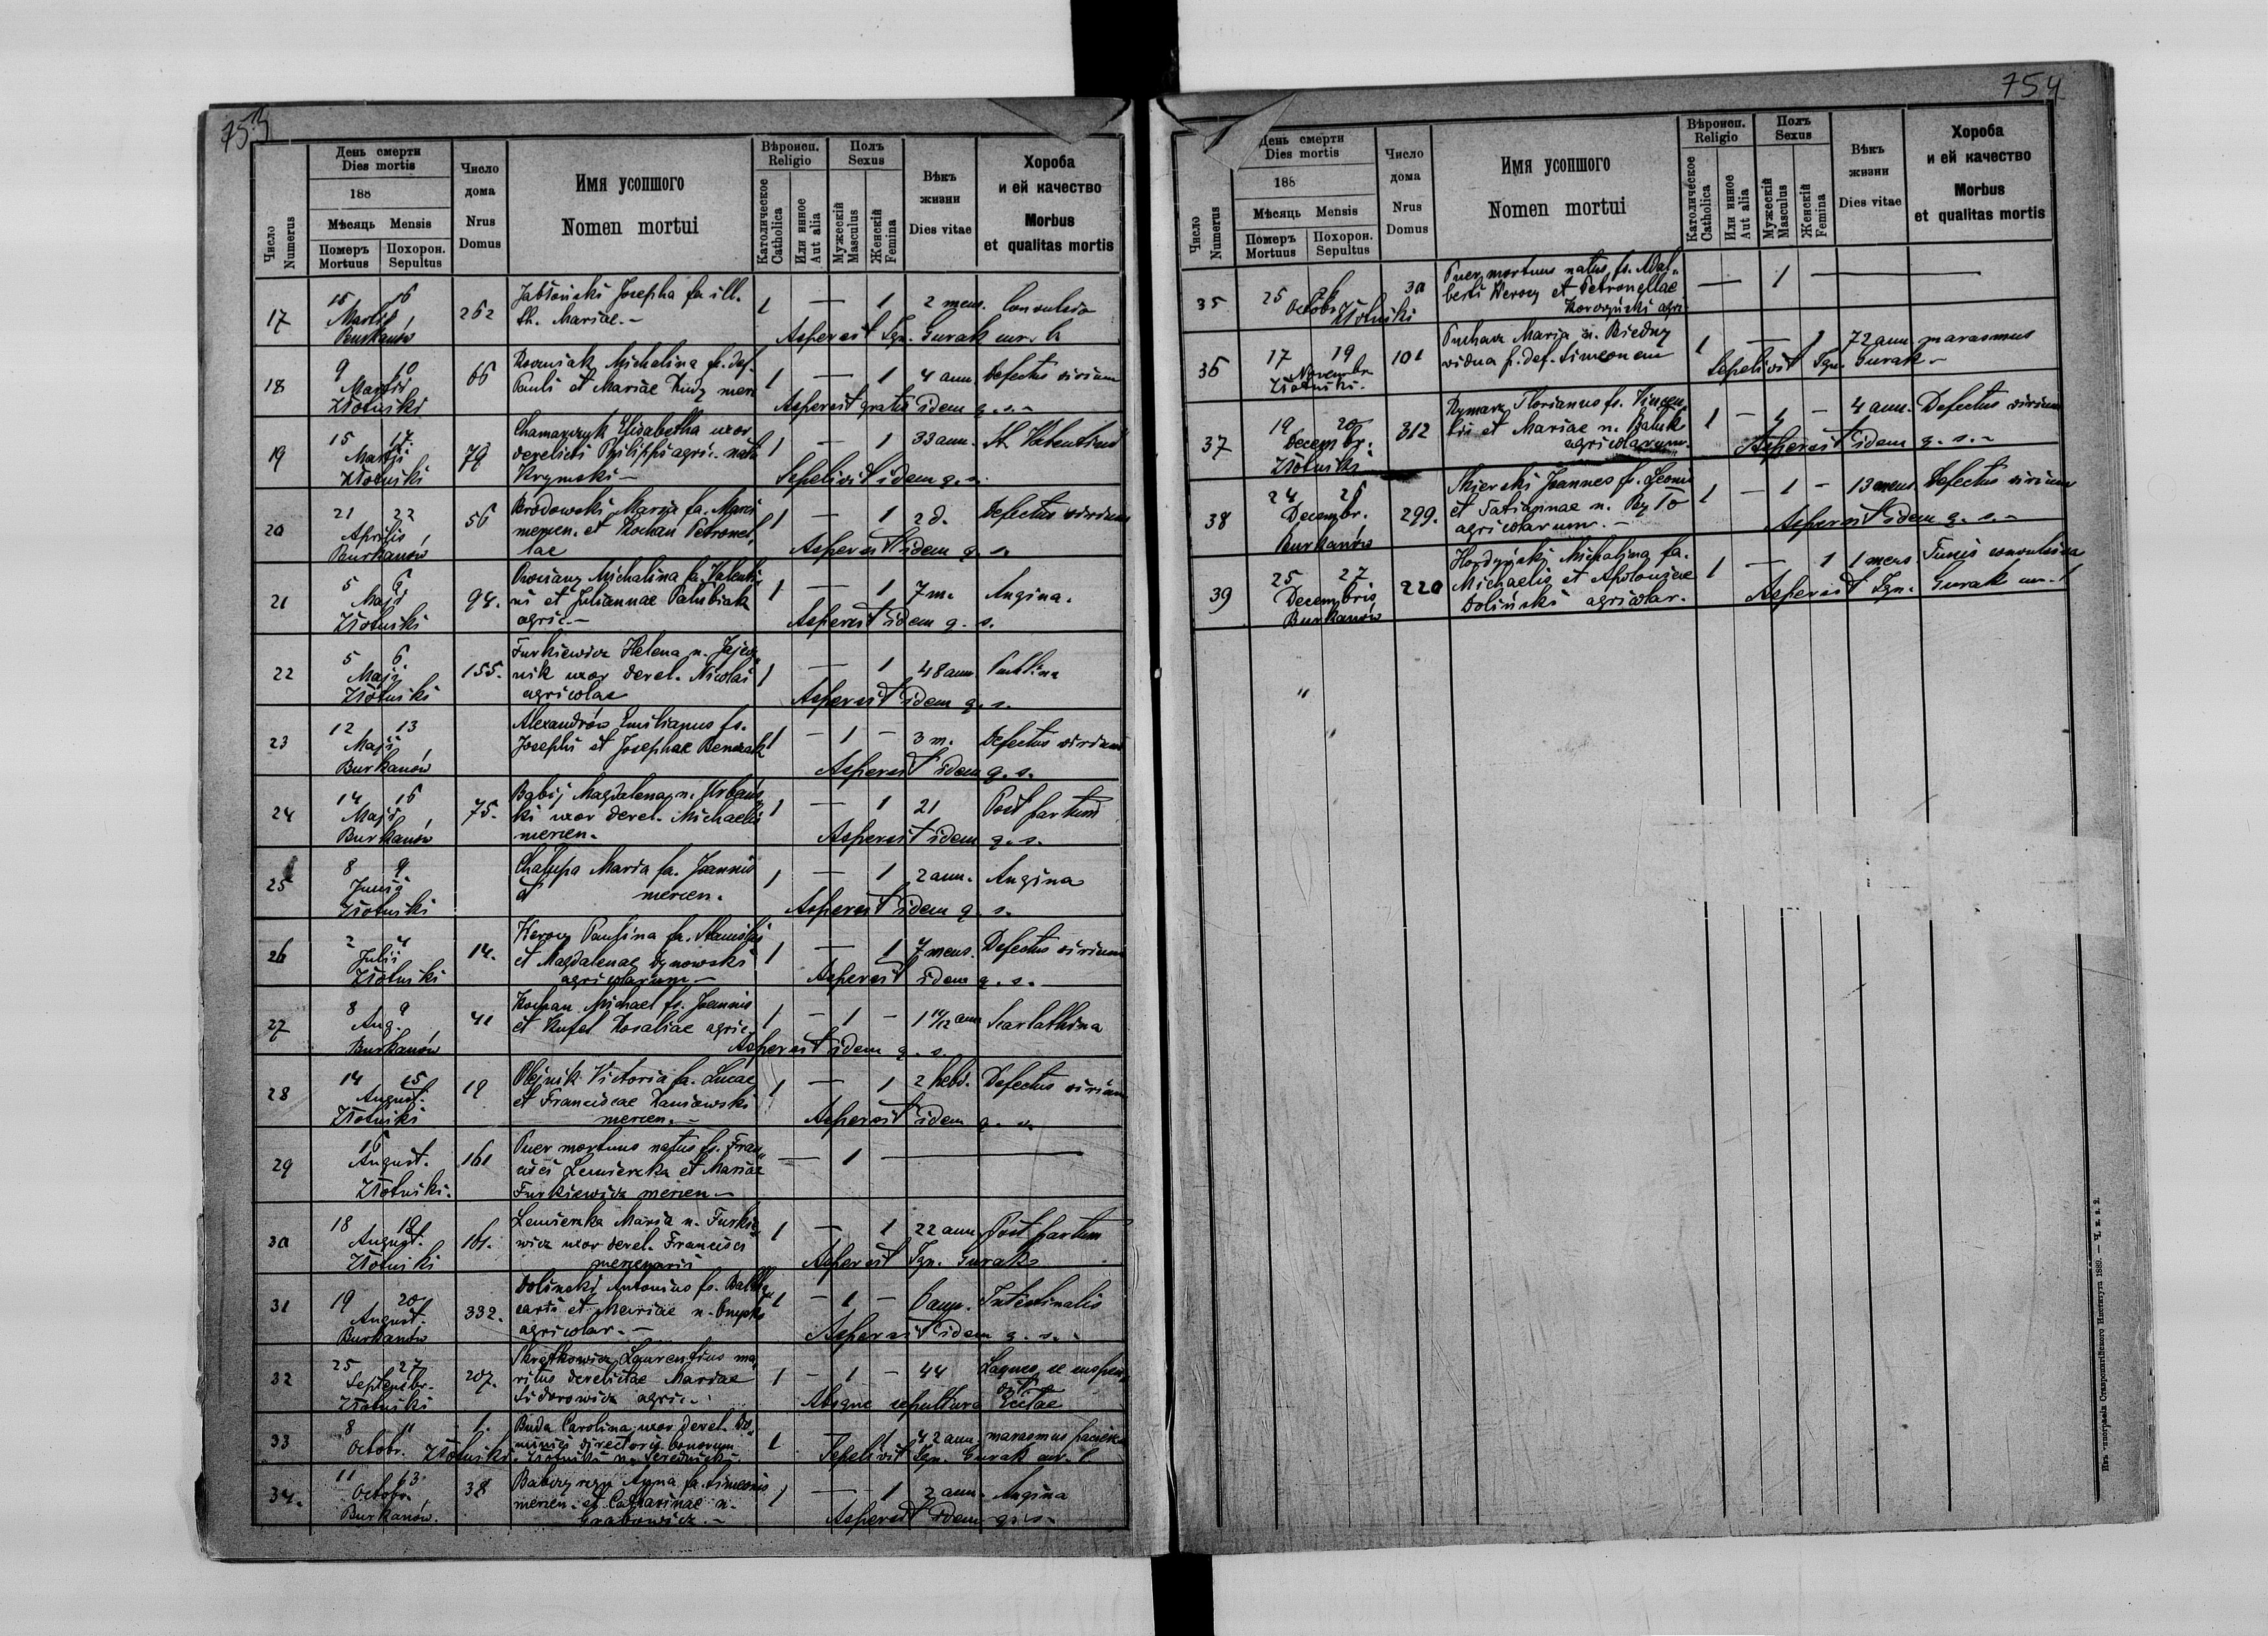 753
Число
Numerus
День смерти
Dies mortis
188
Мѣсяць Mensis
Померъ Похорон.
Mortuus Sepultus
Число
дома
Nrus
Domus
Имя усопшого
Nomen mortui
Вѣроисп.
Religio
Католическое
Catholica
Или инное
Aut alia
Полъ
Sexus
Мужескій
Masculus
Женскій
Femina
Вѣкъ
жизни
Dies vitae
Хороба
и ей качество
Morbus
et qualitas mortis
17 15 16 Martii Burkanów 262
Jabłoński Josepha fa ill.
th. Mariae.-
1 — 1 2 mens. Convulsio
Aspersit Ign. Gurak cur.
18 9 10 Martii Złotniki 66
Michalina fa. def.
Pauli et Mariae merc
1 — 1 4 ann. Defectus virium
Aspersit gratis idem q. s.-
19 15 17. Martii Złotniki 79
Elisabetha uxor
derelicti Philippi agric. nata
Krymski -
1 — 1 33 ann.
Sepelivit idem q. s.
20 21 22 Aprilis Burkanów 56
Brodowski Maria fa. Marci
mercen. et Kochan Petronel
lae
1 — 1 2 d. Defectus virium
Aspersit idem q. s.
21 5 6 Maji Złotniki 94.
Michalina fa. Valenti
ni et Juliannae Palubiak
agric.-
1 — 1 7 m. Angina.
Aspersit idem q. s.
22 5 6 Maji Złotniki 155.
Furkiewicz Helena n.
nik uxor derel. Nicolai
agricolae
1 — 1 48 ann.
Aspersit idem q. s.
23 12 13 Maji Burkanów
Alexandrów Emilianus fs.
Josephi et Josephae Benczak
1 - 1 - 3 m. Defectus virium
Aspersit idem q. s.
24 14 16 Maji Burkanów 75.
Babij Magdalena n. Urbańs
ki uxor derel. Michaelis
mercen.
1 — 1 21 Post partum
Aspersit idem q. s.
25 8 9 Junii Złotniki
Chałupa Maria fa. Joannis
et mercen.
1 — 1 2 ann. Angina
Aspersit idem q. s.
26 2 4 Julii Złotniki 14.
Werocy Paulina fa. Stanislai
et Magdalenae Dynowski
agricolarum -
1 — 1 7 mens. Defectus virium
Aspersit idem q. s.
27 8 9 Aug. Burkanów 41
Kochan Michael fs. Joannis
et Kufel Rosaliae agric.
1 - 1 - ann Scarlathina
Aspersit idem q. s.
28 14 15 August. Złotniki 19
Olejnik Victoria fa. Lucae
et Franciscae Zaniewski
mercen. -
1 — 1 2 hebd. Defectus virium
Aspersit idem q. s.
29 16 August. Złotniki. 161
Puer mortuus natus fs. Fran
cisci Lemiercka et Mariae
Furkiewicz mercen -
— 1 —
30 18 19 August. Złotniki 161.
Maria n. Furkie
wicz uxor derel. Francisci
mercenarii
1 — 1 22 ann. Post partum
Aspersit Ign. Gurak
31 19 20 August. Burkanów 332.
Doliński Antonius fs. Baltha
sari et Mariae n.
agricolar. -
1 - 1 - 6 ann. Intestinalis
Aspersit idem q. s.
32 25 27 Septembr. Złotniki 207.
Laurentius ma
ritus derelictae Mariae
Fidorowicz agric.
1 - 1 - 44 Laqueo se suspen
dit
Absque sepultura
33 8 11 Octobr. Złotniki 1.
Buda Carolina uxor derel. Do
minici directoris bonorum
Złotniki n.
1 - 1 42 ann. marasmus
Sepelivit Ign. Gurak cur.
34. 11 13 Octobr. Burkanów. 38
Anna fa. Simeonis
mercen. et Catharinae n.
Grabowicz.-
1 — 1 2 ann. Angina
Aspersit idem q. s.
754
Число
Numerus
День смерти
Dies mortis
188
Мѣсяць Mensis
Померъ Похорон.
Mortuus Sepultus
Число
дома
Nrus
Domus
Имя усопшого
Nomen mortui
Вѣроисп.
Religio
Католическое
Catholica
Или инное
Aut alia
Полъ
Sexus
Мужескій
Masculus
Женскій
Femina
Вѣкъ
жизни
Dies vitae
Хороба
и ей качество
Morbus
et qualitas mortis
35 25 26 Octobr. Złotniki 30
Puer mortuus natus fs. Adal
berti Werocy et Petronellae
agric
— 1 —
36 17 19 Novembr. Złotniki. 101
Puchacz Maria n. Biedny
vidua p. def. Simeonem
1 — 1 72 ann. marasmus
Sepelivit Ign. Gurak -
37 19 20 Decembr. Złotniki 312
Rymarz Florianus fs. Vincen
tii et Mariae n.
agricolarum.
1 - 1 - 4 ann. Defectus virium
Aspersit idem q. s. -
38 24 26 Decembr. Burkanów 299.
Joannes fs.
et Tatiannae n.
agricolarum. -
1 - 1 - 13 mens. Defectus virium
Aspersit idem q. s. -
39 25 27 Decembris Burkanów 220
Hordyński Michalina fa.
Michaelis et Apoloniae
Doliński agricolar.
1 — 1 1 mens Tussis convulsiva
Aspersit Ign. Gurak cur.
Изъ типографіи Ставропигійского Института 1889. — Ч. к. з. 2.